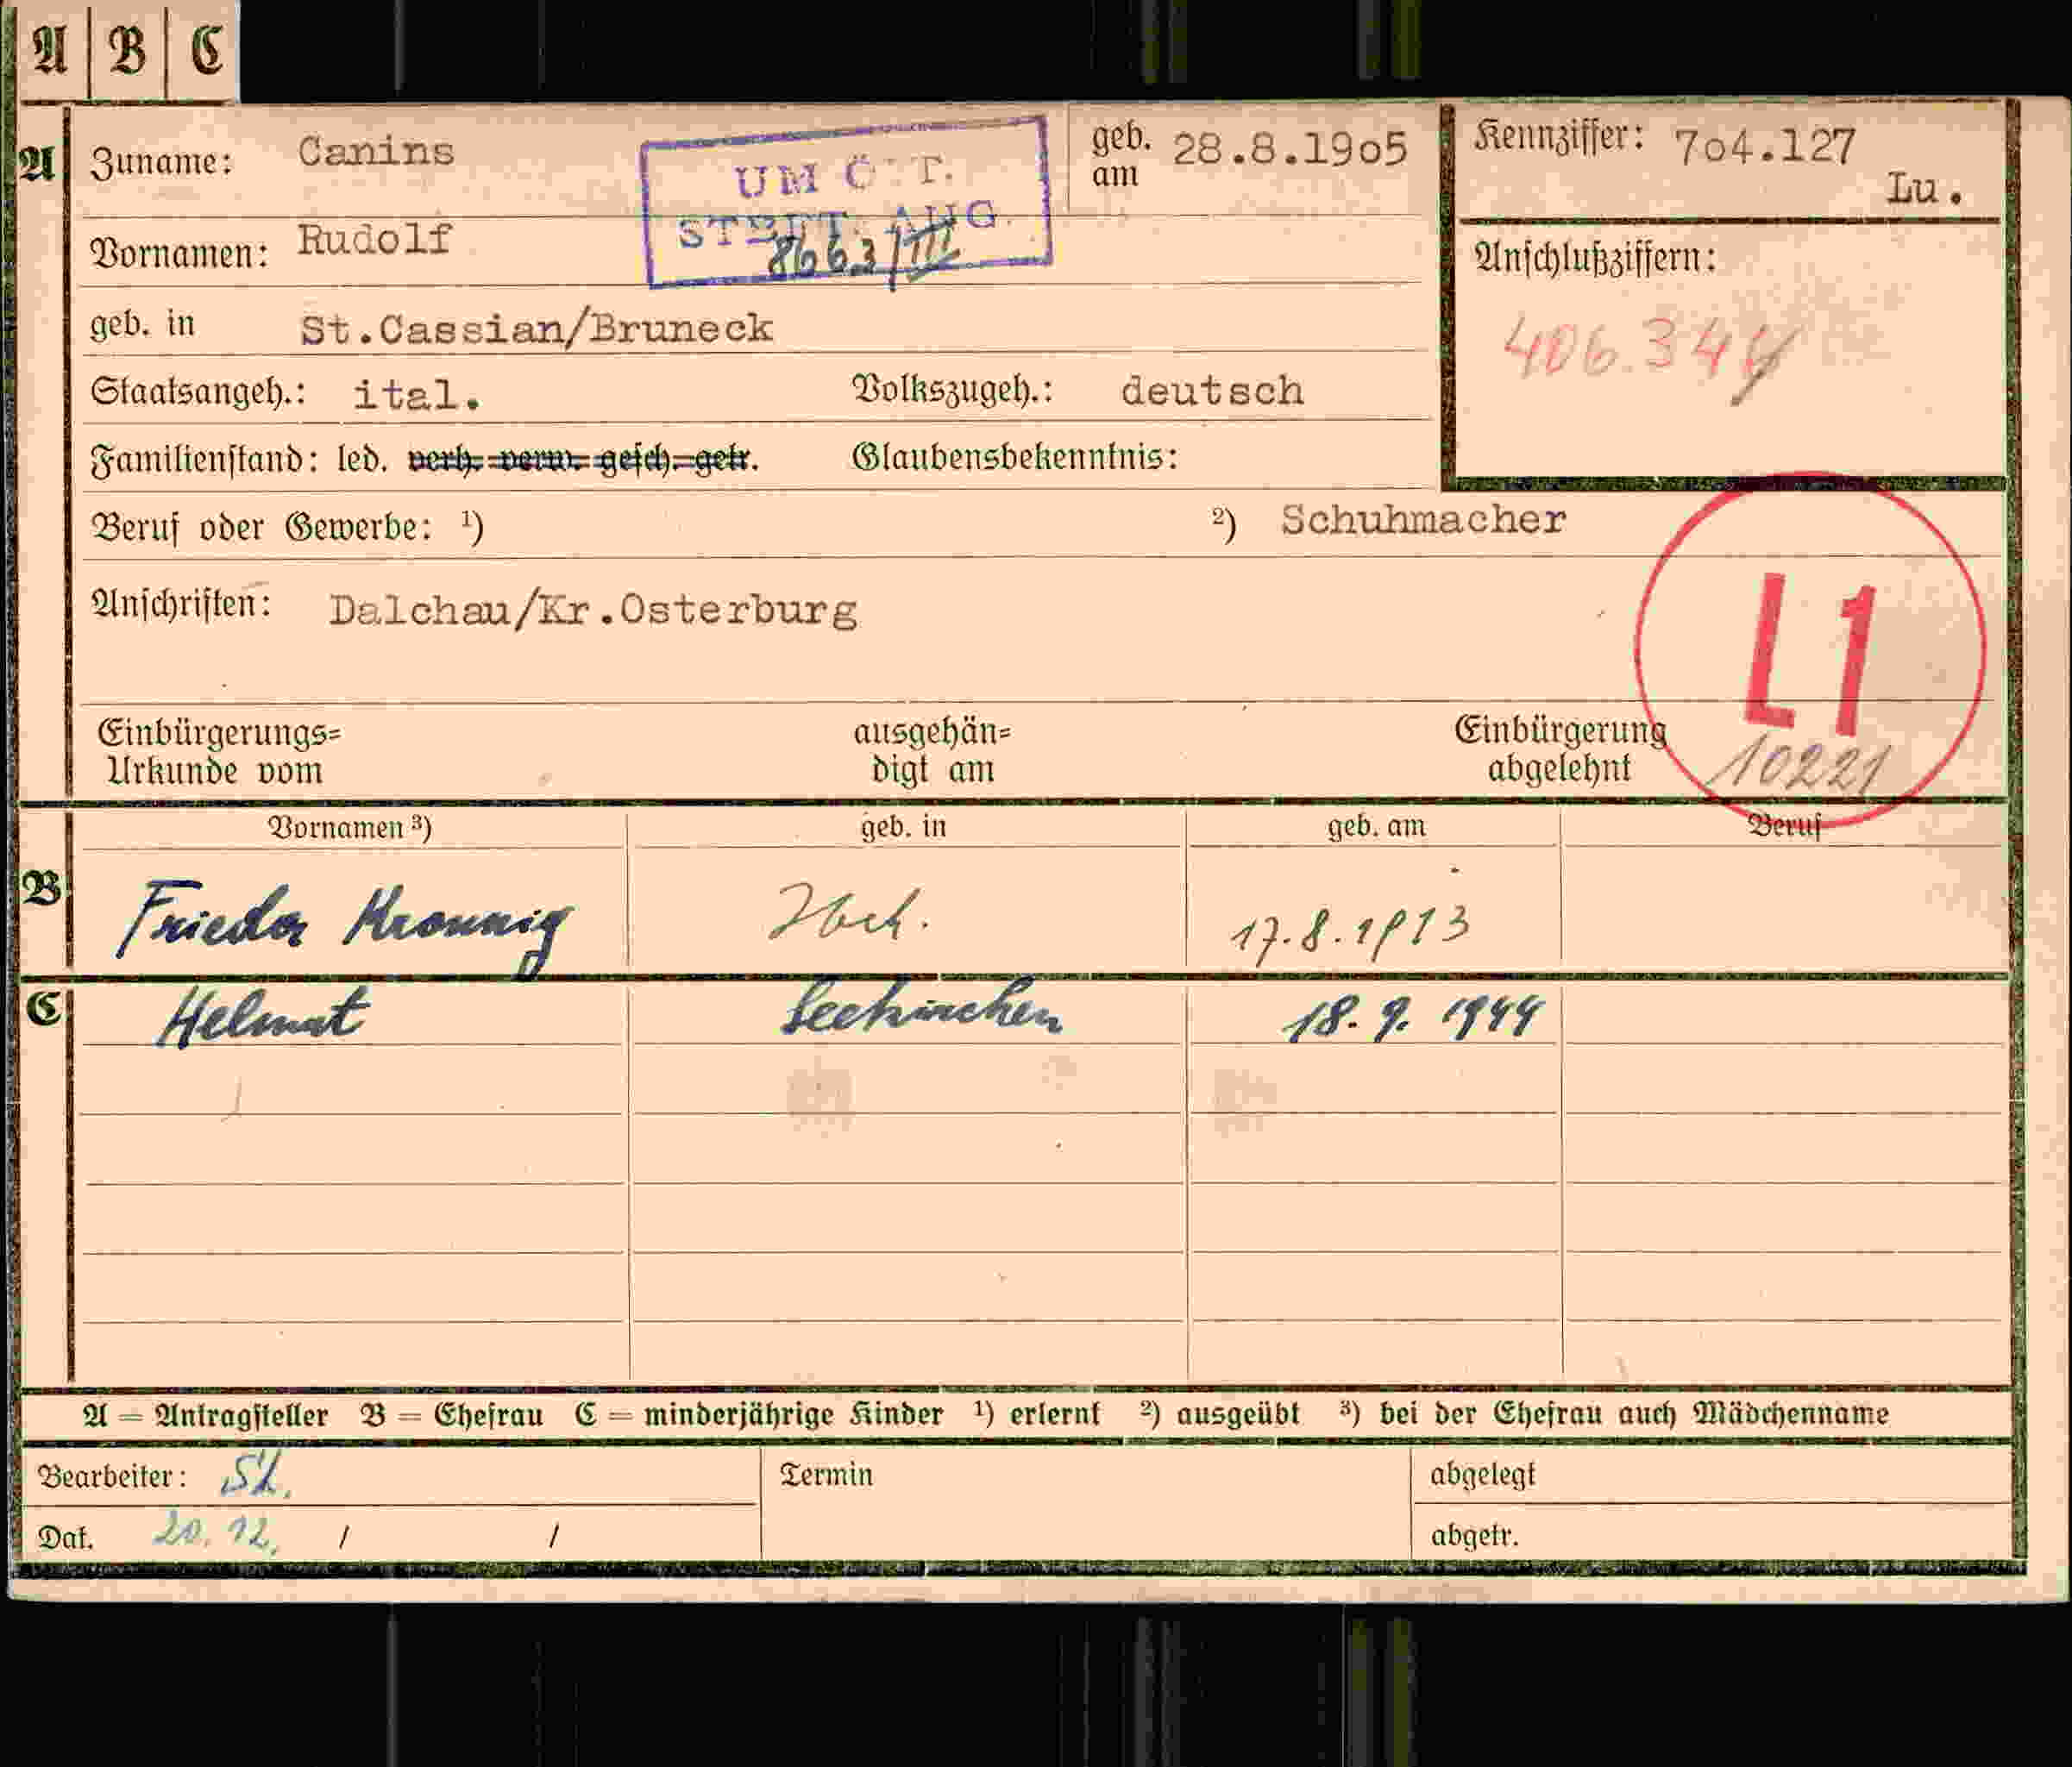 A B C
A Zuname: Canins geb. am 28.8.1905 Kennziffer: 704.127
Lu.
UM
8663/III
Vornamen: Rudolf
Anschlußziffern:
406.344
geb. in St.Cassian/Bruneck
Staatsangeh.: ital. Volkszugeh.: deutsch
Familienstand: led. verh. verw. gesch. getr. Glaubensbekenntnis:
Beruf oder Gewerbe: ¹) ²) Schuhmacher
Anschriften: Dalchau/Kr.Osterburg
L1
10221
Einbürgerungs= Urkunde vom ausgehän= digt am Einbürgerung abgelehnt
Vornamen ³) geb. in geb. am Beruf
B Frieda Ibch. 17.8.1913
C Helmut Seekirchen 18. 9. 1944
A = Antragsteller B = Ehefrau C = minderjährige Kinder ¹) erlernt ²) ausgeübt ³) bei der Ehefrau auch Mädchenname
Bearbeiter: Termin abgelegt
Dat. 20. 12. / / abgetr.